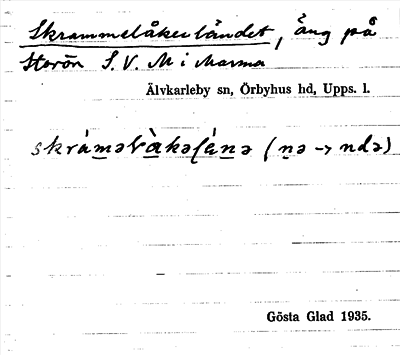 Skrammelåkerländet, äng på
Storön S.V. M i Marma
Älvkarleby sn, Örbyhus hd, Upps. l.
(nə → ndə)
Gösta Glad 1935.